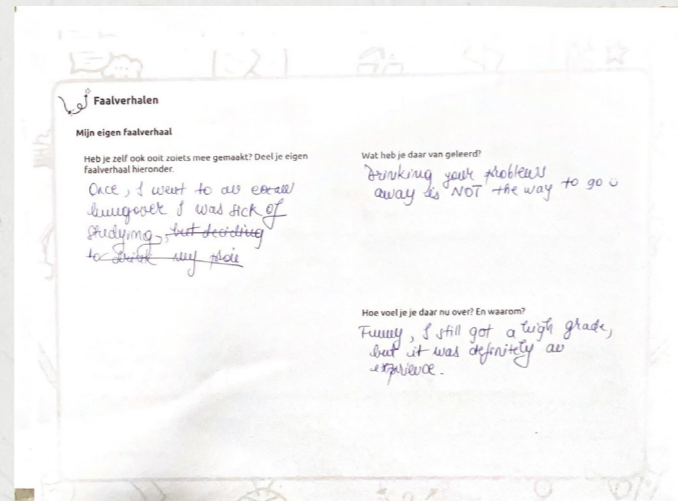 Faalverhalen
Mijn eigen faalverhaal
Heb je zelf ook ooit zoiets mee gemaakt? Deel je eigen
faalverhaal hieronder.
Once, I went to an exam
hungover I was sick of
studying, but deciding
to drink my
Wat heb je daar van geleerd?
Drinking your problems
away is NOT the way to go
Hoe voel je je daar nu over? En waarom?
Funny, I still got a high grade,
but it was definitely an
experience.